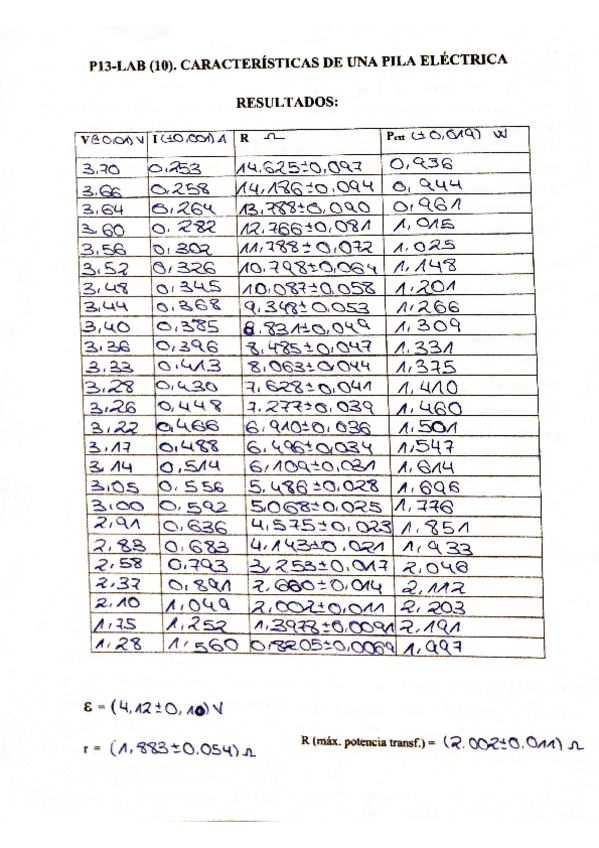 P13-LAB (10). CARACTERÍSTICAS DE UNA PILA ELÉCTRICA
RESULTADOS:
V(±0,01) V I (±0,001) A R Ω Pext (±0,019) W
3,70 0,253 14,625±0,097 0,936
3,66 0,258 14,186±0,094 0,944
3,64 0,264 13,788±0,090 0,961
3,60 0,282 12,766±0,081 1,015
3,56 0,302 11,788±0,072 1,025
3,52 0,326 10,798±0,064 1,148
3,48 0,345 10,087±0,058 1,201
3,44 0,368 9,348±0,053 1,266
3,40 0,385 8,831±0,049 1,309
3,36 0,396 8,485±0,047 1,331
3,33 0,413 8,063±0,044 1,375
3,28 0,430 7,628±0,041 1,410
3,26 0,448 7,277±0,039 1,460
3,22 0,466 6,910±0,036 1,501
3,17 0,488 6,496±0,034 1,547
3,14 0,514 6,109±0,031 1,614
3,05 0,556 5,486±0,028 1,696
3,00 0,592 5,068±0,025 1,776
2,91 0,636 4,575±0,023 1,851
2,83 0,683 4,143±0,021 1,933
2,58 0,793 3,253±0,017 2,046
2,37 0,891 2,660±0,014 2,112
2,10 1,049 2,002±0,011 2,203
1,75 1,252 1,3978±0,0091 2,191
1,28 1,560 0,8205±0,0069 1,997
ε = (4,12±0,10) V
r = (1,883±0,054) Ω R (máx. potencia transf.) = (2,002±0,011) Ω